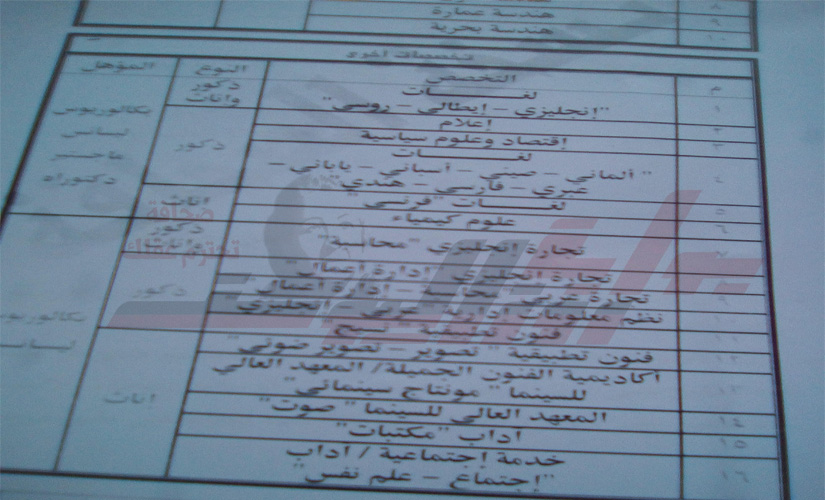 ٨
٩ هندسة عمارة
١٠ هندسة بحرية
تخصصات أخرى
م التخصص النوع المؤهل
١ لغـــات ذكور
"إنجليزي – إيطالي – روسي" وإناث
٢ إعلام بكالوريوس
٣ إقتصاد وعلوم سياسية ذكور ليسانس
٤ لغـــات ماجستير
" ألماني – صيني – أسباني – ياباني – دكتوراه
عبري – فارسي – هندي"
٥ لغـــات "فرنسي" إناث
٦ علوم كيمياء ذكور
٧ تجارة إنجليزي "محاسبة" وإناث
تجارة إنجليزي "إدارة أعمال"
٩ تجارة عربي محاسبة – إدارة أعمال ذكور
١٠ نظم معلومات إدارية عربي – إنجليزي بكالوريوس
١١ فنون تطبيقية " نسيج ليسانس
١٢ فنون تطبيقية " تصوير – تصوير ضوئي"
١٣ أكاديمية الفنون الجميلة / المعهد العالي
للسينما " مونتاج سينمائي" إناث
١٤ المعهد العالي للسينما " صوت"
١٥ آداب "مكتبات"
١٦ خدمة إجتماعية / آداب
"إجتماع – علم نفس"
صحافة
تحترم عقلك